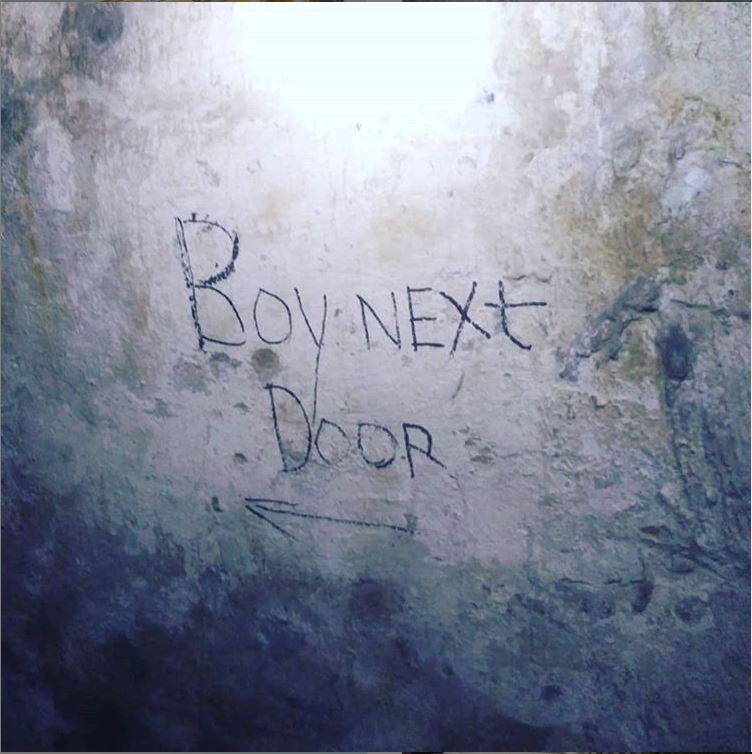 Boy NEXt
DOOR